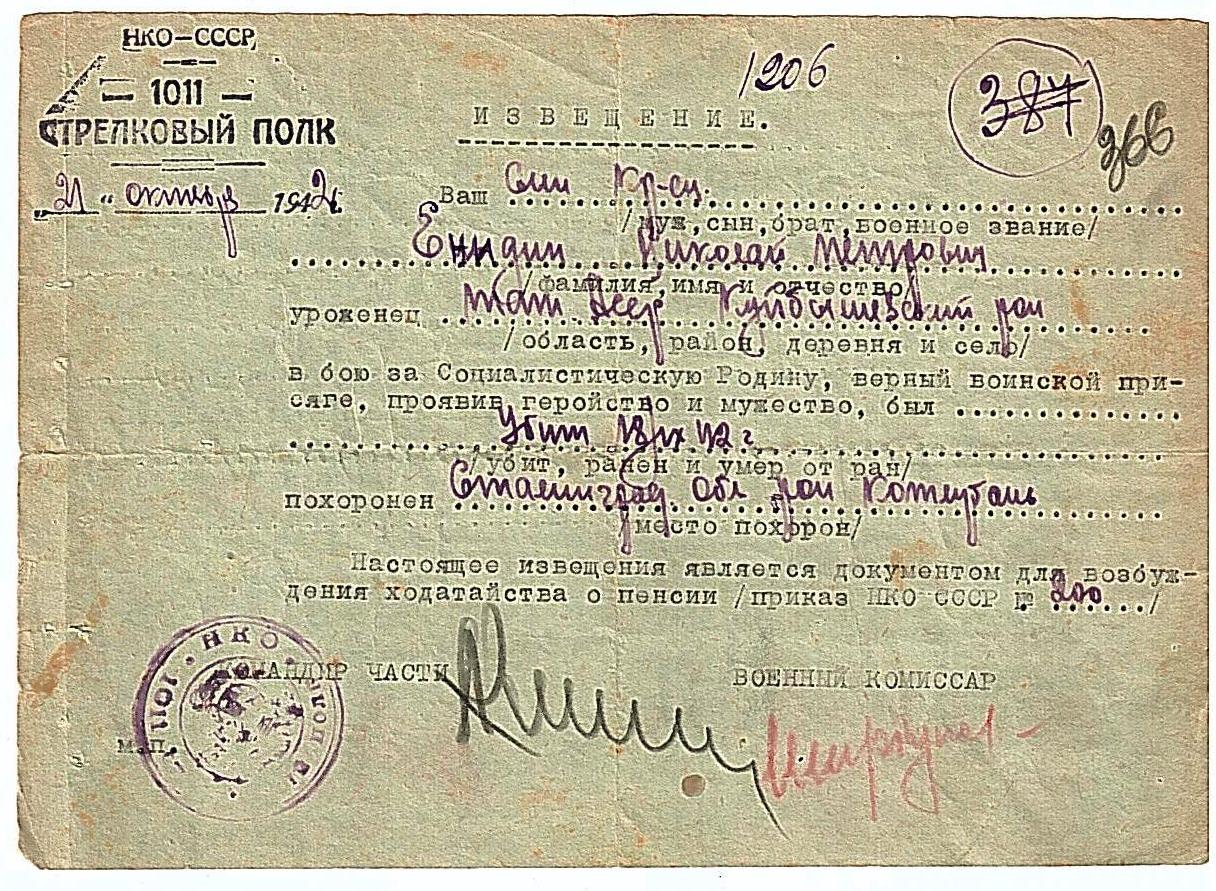 НКО-СССР
— 1011 —
СТРЕЛКОВЫЙ ПОЛК
"21" октября 1942г.
1206
387
366
ИЗВЕЩЕНИЕ.
Ваш Сын кр-ец.
/муж, сын, брат, военное звание/
Николай Петрович
/фамилия, имя и отчество/
уроженец Тат Ссср Куйбышевский рай
/область, район, деревня и село/
в бою за Социалистическую Родину, верный воинской при-
сяге, проявив геройство и мужество, был
Убит 18/IX 42 г.
/убит, ранен и умер от ран/
похоронен Сталинград. Обл рай Котлубань
/место похорон/
Настоящее извещения является документом для возбуж-
дения ходатайства о пенсии /приказ НКО СССР № 200/
КОМАНДИР ЧАСТИ
ВОЕННЫЙ КОМИССАР
м.п.
НКО
1011